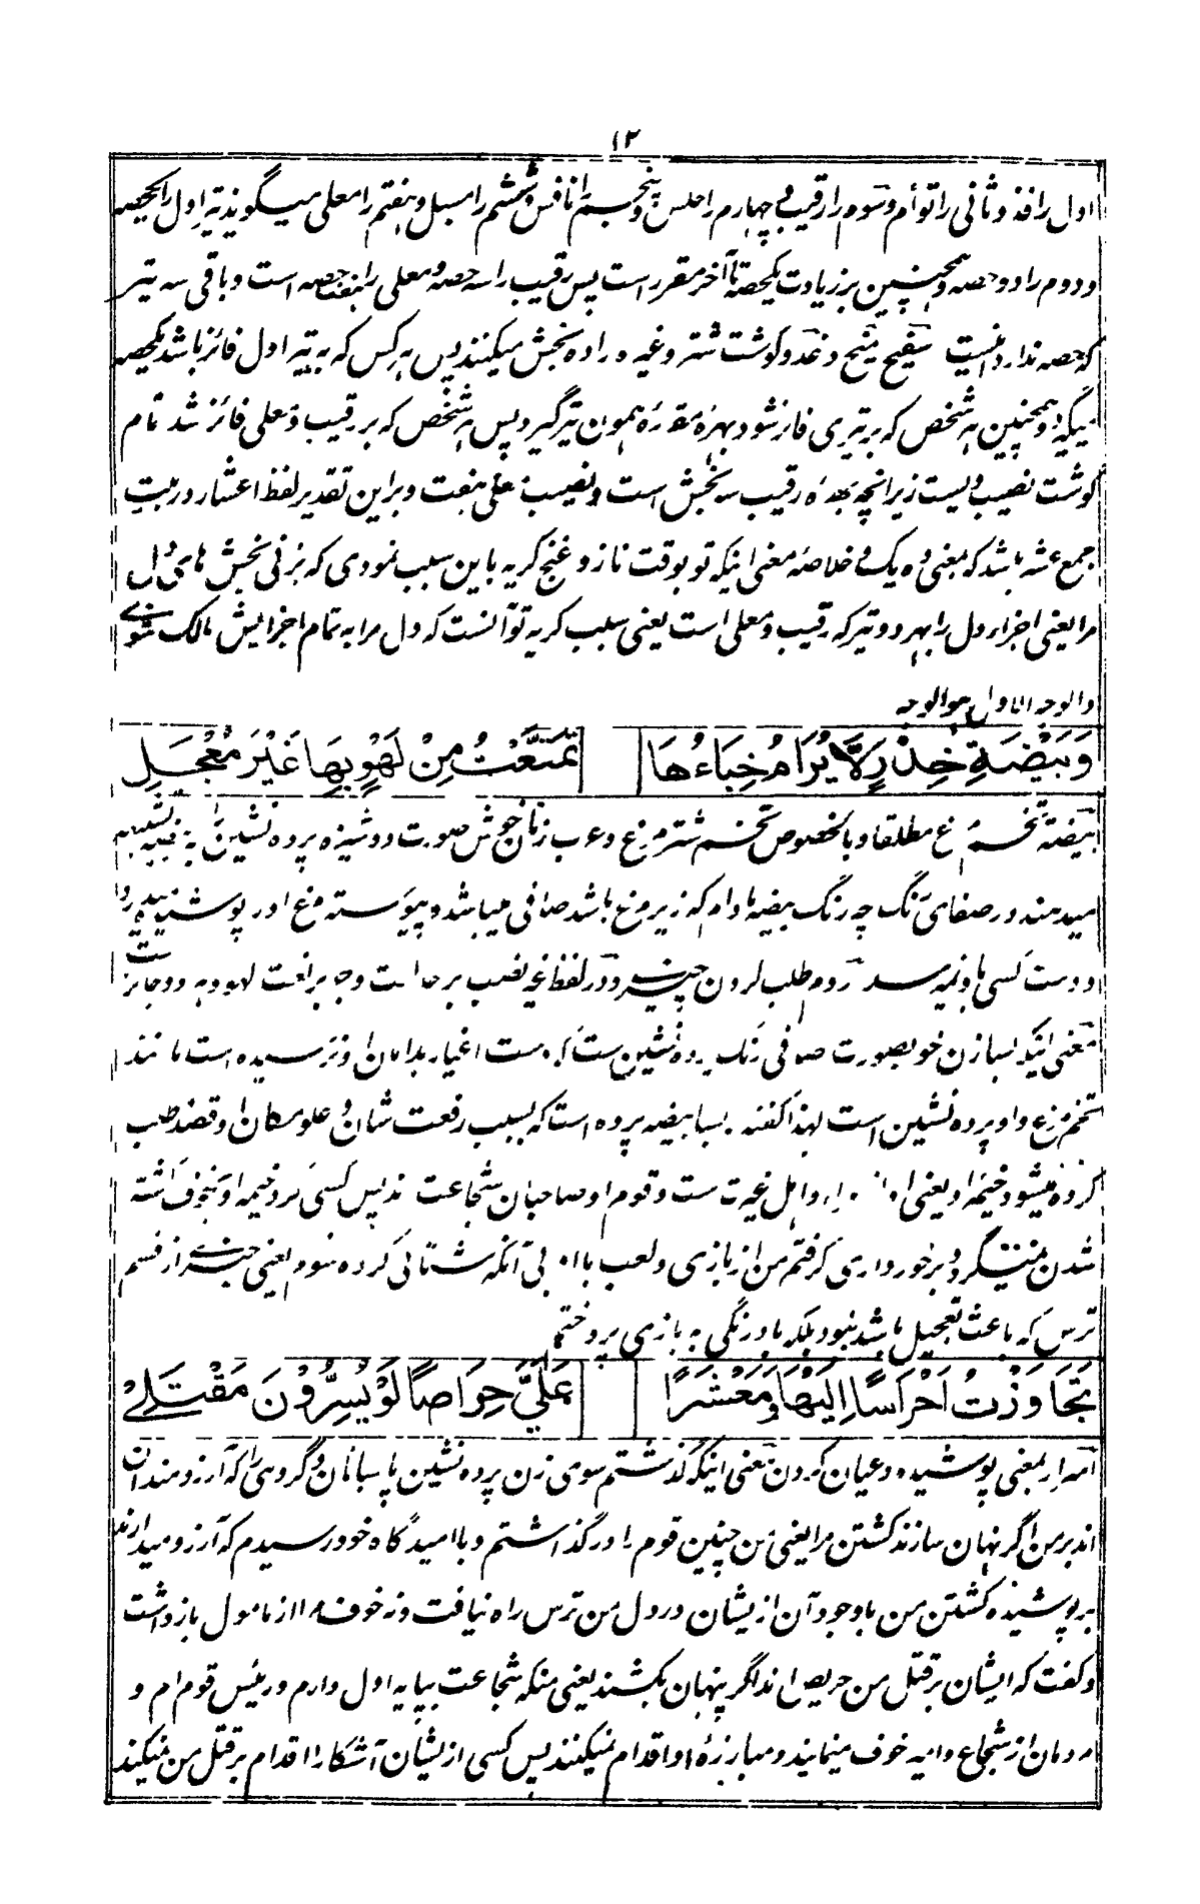 ۱۲
اول را فذ و ثانی را توأم و سوم را رقیب و چهارم را حلس و پنجم را نافس و ششم را مسبل و هفتم را معلی میگویند تیر اول را یکحصه
و دوم را دو حصه و همچنین بر زیادت یکحصه تا آخر مقرر است پس رقیب را سه حصه و معلی را هفت حصه است و باقی سه تیر
که حصه ندارد سفیح منیح وغد و گوشت شتر وغیره را ده بخش میکنند پس هر کس که به تیر اول فائز باشد یکحصه
میگیرد و همچنین هر شخص که بر تیری فائز شود بهرهٔ مقررهٔ همون تیر گیرد پس هر شخص که بر رقیب و معلی فائز شد تمام
گوشت نصیب ویست زیرانچه بهرهٔ رقیب سه بخش است و نصیب معلی هفت و براین تقدیر لفظ اعشار در بیت
جمع عشر باشد که بمعنی ده یک و خلاصهٔ معنی اینکه تو بوقت ناز و غنج گریه باین سبب نمودی که بزنی بخش های دل
مرا یعنی اجزاء دل را بهر دو تیر که رقیب و معلی است یعنی سبب گریه تو آنست که دل مرا به تمام اجزایش مالک شوی
والوجه الاول هو الوجه
وَبَيْضَةِ خِدْرٍ لَا يُرَامُ خِبَاءُهَا تَمَتَّعْتُ مِنْ لَهْوٍ بِهَا غَيْرَ مُعْجَلِ
بیضة تخم مرغ مطلقا و بالخصوص تخم شتر مرغ و عرب زنان خوش صورت دوشیزه پرده نشین را به بیضه تشبیه
میدهند در صفای رنگ چه رنگ بیضه مادام که زیر مرغ باشد صافی میباشد و پیوسته مرغ او را پوشیده دارد
و دست کسی باو نمیرسد روم طلب کردن چیزی و در لفظ غیر نصب بر حالت وجر بر نعت لهو هر دو جائز است
معنی اینکه بسا زن خوبصورت صافی رنگ پرده نشین ست که دست اغیار بدامان او نرسیده است مانند
تخم مرغ و او پرده نشین است لهذا گفته بسا بیضه پرده است که بسبب رفعت شان و علو مکان او قصد و طلب
کرده نمیشود خیمه او یعنی اهل غیرت ست و قوم او صاحبان شجاعت ند پس کسی گرد خیمه او بخوف کشته
شدن نمیگردد برخورداری گرفتم من از بازی و لعب با او بی آنکه شتابی کرده شود یعنی چیزی از قسم
ترس که باعث تعجیل باشد نبود بلکه با درنگی به بازی پرداختم
تَجَاوَزْتُ أَحْرَاسًا إِلَيْهَا وَمَعْشَرًا عَلَيَّ حِرَاصًا لَوْ يُسِرُّوْنَ مَقْتَلِيْ
اسرار بمعنی پوشیدن و عیان کردن معنی اینکه گذشتم سوی زن پرده نشین پاسبانان و گروهی را که آرزومندان
اند بر من اگر نهان سازند کشتن مرا یعنی من چنین قوم را در گذاشتم و با امید گاه خود رسیدم که آرزو میدارند
بر پوشیده کشتن من باوجود آن از یشان در دل من ترس راه نیافت و نه خوف مرا از مامول بازداشت
و گفت که ایشان بر قتل من حریص اند اگر پنهان بکشند یعنی منکه شجاعت بپایه اول دارم و رئیس قوم ام و
مردمان از شجاع و امیر خوف مینمایند و مبارزهٔ او اقدام نمیکنند پس کسی از یشان آشکارا اقدام بر قتل من نمیکند